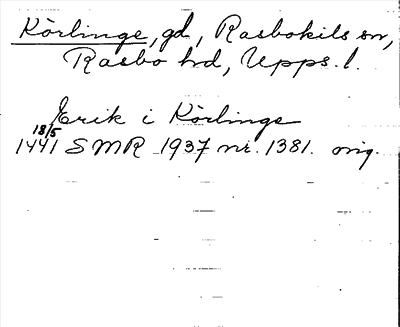 Körlinge, gd, Rasbokils sn,
Rasbo hd, Upps. l.
Erik i Körlinge
18/5
1441 SMR 1937 nr. 1381. orig.